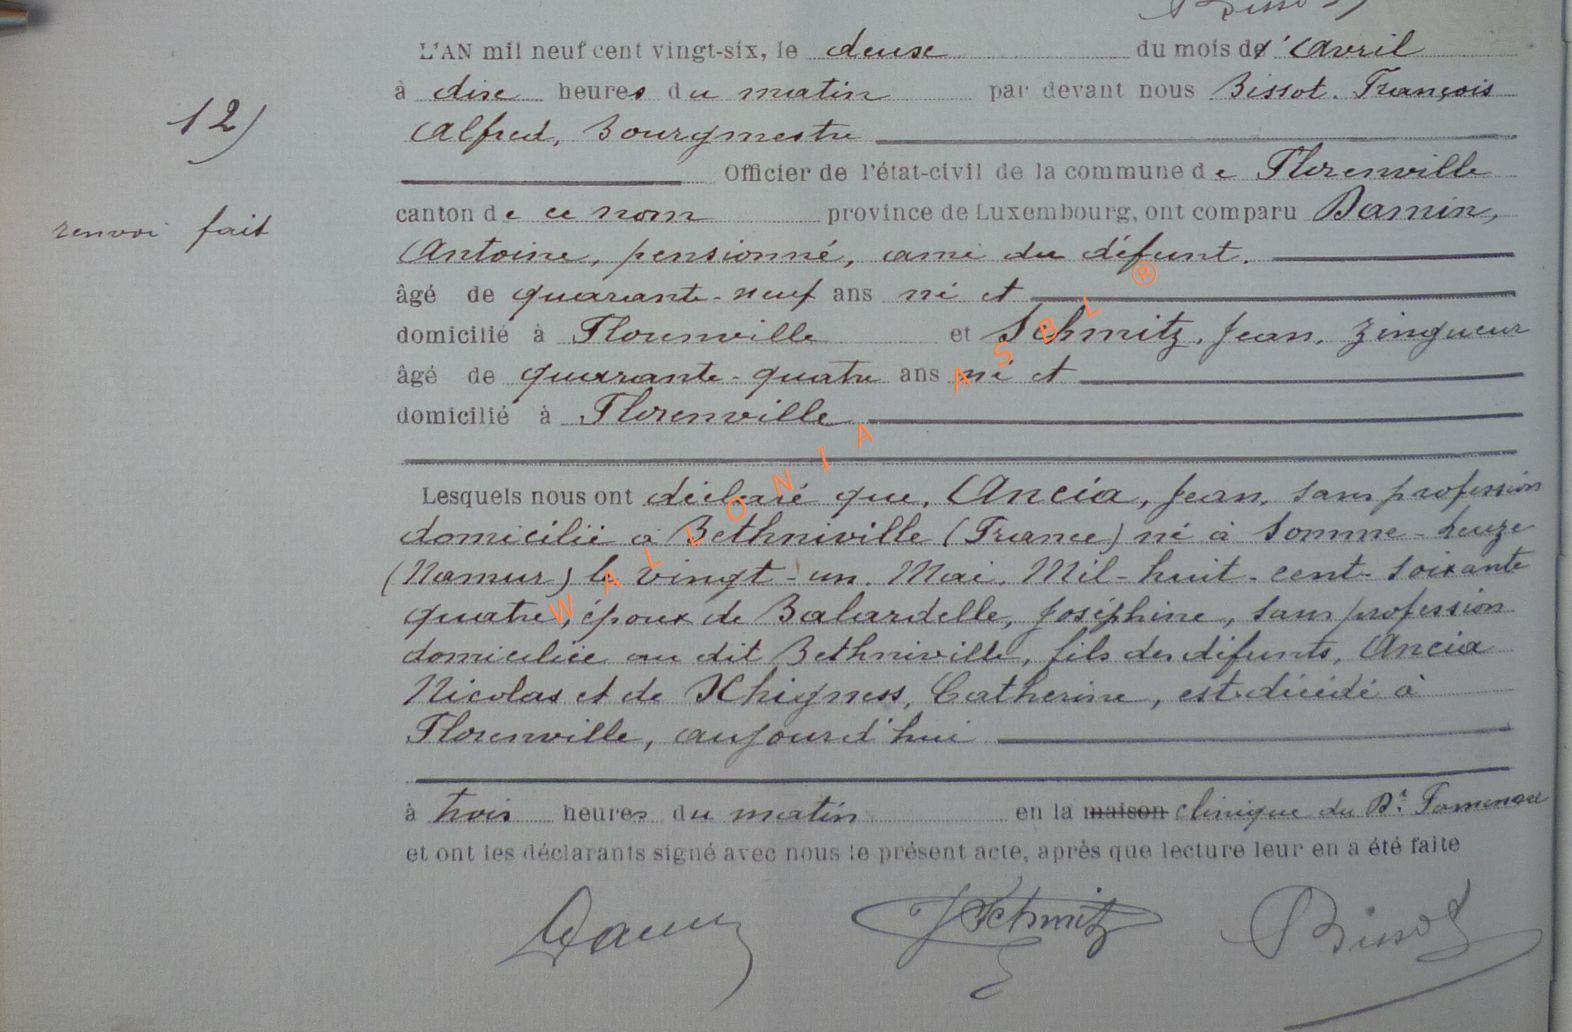 L'AN mil neuf cent vingt-six, le deuse du mois d' Avril
12)
à dix heures du matin par devant nous Bissot. François
Alfred, Bourgmestre
Officier de l'état-civil de la commune de Florenville
renvoi fait
canton de ce nom province de Luxembourg, ont comparu Damin,
Antoine, pensionné, ami du défunt.
âgé de quarante-neuf ans né et
domicilié à Florenville et Schmitz, Jean, zingueur
âgé de quarante-quatre ans né et
domicilié à Florenville
Lesquels nous ont déclaré que, Ancia, Jean, sans profession
domicilié à Bethniville (France) né à Somme-Leuze
(Namur) le vingt-un Mai. Mil-huit-cent-soixante
quatre, époux de Balardelle, Joséphine, sans profession
domiciliée au dit Bethniville, fils des défunts, Ancia
Nicolas et de Khigness, Catherine, est décédé à
Florenville, aujourd'hui
à trois heures du matin en la maison clinique du Dr.
et ont les déclarants signé avec nous le présent acte, après que lecture leur en a été faite
Damin JSchmitz Bissot
WALLONIA ASBL ®